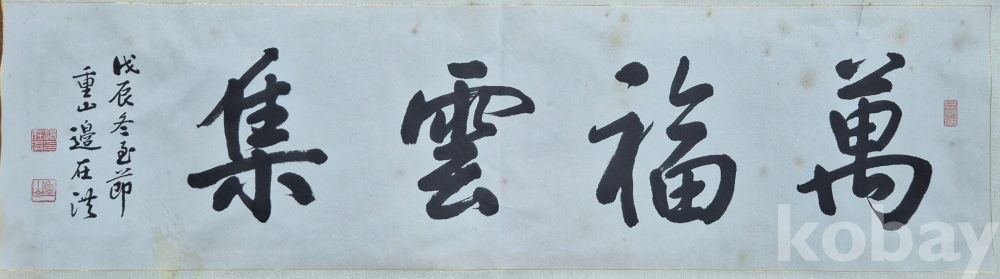 萬福雲集
戊辰冬至節
重山邊在洪
kobay